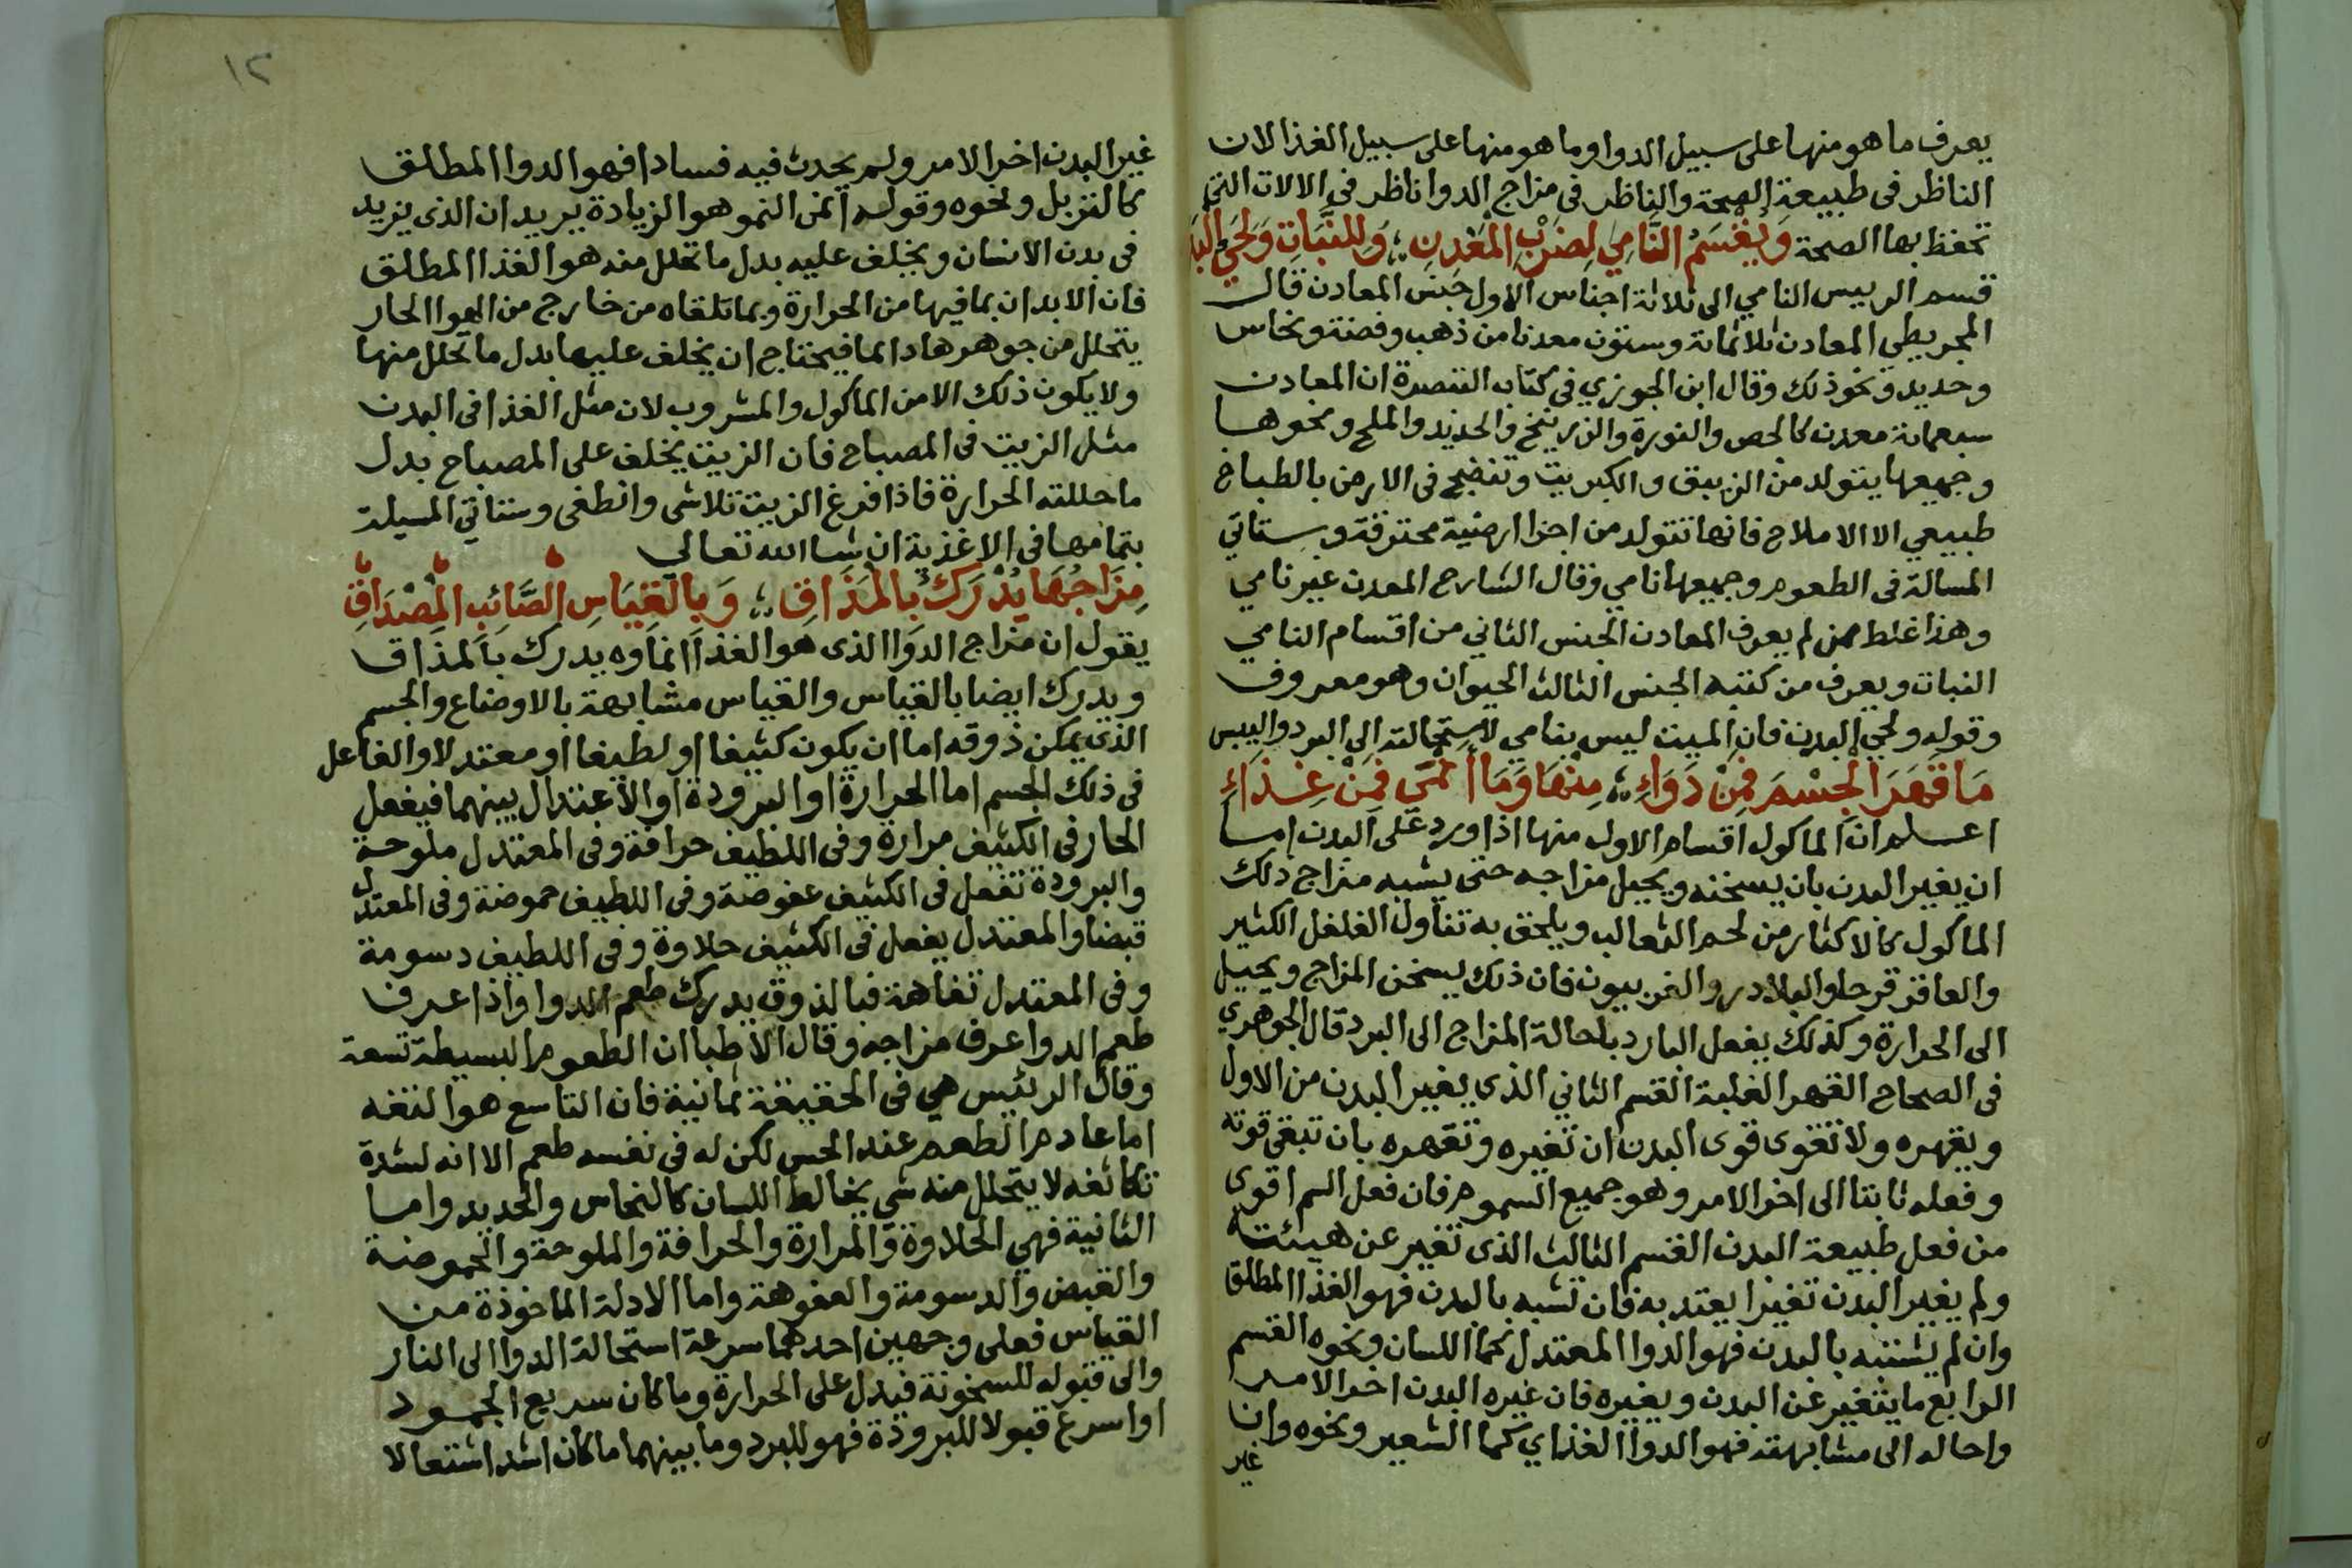 يعرف ما هو منها على سبيل الدوا وما هو منها على سبيل الغذا لان
الناظر فى طبيعة الصحة والناظر فى مزاج الدوا ناظر فى الالات التى
تحفظ بها الصحة وَيُقْسَمُ النَّامِي لِضَرْبِ المَعْدِنِ ؛ وَللنَّبَاتِ وَلِحَيِّ البَدَ
قسم الرييس النامي الى ثلاثة اجناس الاول جنس المعادن قال
المجريطي المعادن ثلاثماية وستون معدنا من ذهب وفضة ونحاس
وحديد ونحو ذلك وقال ابن الجوزي فى كتاب التبصرة ان المعادن
سبعماية معدن كالجص والنورة والزرنيخ والحديد والملح ونحوها
وجميعها يتولد من الزيبق والكبريت وتنضج فى الارض بالطباخ
طبيعي الا الاملاح فانها تتولد من اجزا ارضية محترقة وستاتي
المسالة فى الطعوم وجميعها نامي وقال الشارح المعدن غير نامي
وهذا غلط ممن لم يعرف المعادن الجنس الثاني من اقسام النامي
النبات ويعرف من كتبه الجنس الثالث الحيوان وهو معروف
وقوله ولحي البدن فان الميت ليس بنامي لاستحالته الى البرد واليبس
مَا قَهَرَ الجِسْمَ فَمِنْ دَوَاءِ ؛ مِنْهَا وَمَا أَنْمَى فَمِنْ غِذَاءِ
اعلم ان الماكول اقسام الاول منها اذا ورد على البدن اما
ان يغير البدن بان يسخنه ويحيل مزاجه حتى يشبه مزاج ذلك
الماكول كالاكثار من لحم الثعالب ويلحق به تناول الفلفل الكثير
والعاقر قرحا والبلادر والفربيون فان ذلك يسخن المزاج ويحيل
الى الحرارة وكذلك يفعل البارد باحالة المزاج الى البرد قال الجوهري
فى الصحاح القهر الغلبة القسم الثاني الذى يغير البدن من الاول
ويقهره ولا تقوى قوى البدن ان تغيره وتقهره بان تبقى قوته
وفعله ثابتا الى اخر الامر وهو جميع السموم فان فعل السم اقوى
من فعل طبيعة البدن القسم الثالث الذى تغير عن هيئته
ولم يغير البدن تغيرا يعتد به فان تشبه بالبدن فهو الغذا المطلق
وان لم يشتبه بالبدن فهو الدوا المعتدل كما اللسان ونحوه القسم
الرابع ما يتغير عن البدن ويغيره فان غيره البدن اخر الامر
واحاله الى مشابهته فهو الدوا الغذاي كما الشعير ونحوه وان
غير
١٢
غير البدن اخر الامر ولم يحدث فيه فسادا فهو الدوا المطلق
كالتربل ونحوه وقوله انمى النمو هو الزيادة يريد ان الذى يزيد
فى بدن الانسان ويخلف عليه بدل ما تحلل منه هو الغذا المطلق
فان الابدان بما فيها من الحرارة وبما تلقاه من خارج من الهوا الحار
يتحلل من جوهرها دايما فيحتاج ان يخلف عليها بدل ما تحلل منها
ولا يكون ذلك الا من الماكول والمشروب لان مثل الغذا فى البدن
مثل الزيت فى المصباح فان الزيت يخلف على المصباح بدل
ما حللته الحرارة فاذا فرغ الزيت تلاشى وانطفى وستاتي المسيلة
بتمامها فى الاغذية ان شا الله تعالى
مِزَاجُهَا يُدْرَكُ بالمَذَاقِ ؛ وَبالقِيَاسِ الصَّائِبِ المِصْدَاقِ
يقول ان مزاج الدوا الذى هو الغذا انماوه يدرك بالمذاق
ويدرك ايضا بالقياس والقياس مشابهة بالاوضاع والجسم
الذى يمكن ذوقه اما ان يكون كثيفا او لطيفا او معتدلا والفاعل
فى ذلك الجسم اما الحرارة او البرودة او الاعتدال بينهما فيفعل
الحار فى الكثيف مرارة وفى اللطيف حرافة وفى المعتدل ملوحة
والبرودة تفعل فى الكثيف عفوصة وفى اللطيف حموضة وفى المعتدل
قبضا والمعتدل يفعل فى الكثيف حلاوة وفى اللطيف دسومة
وفى المعتدل تفاهة فبالذوق يدرك طعم الدوا واذا عرف
طعم الدوا عرف مزاجه وقال الاطبا ان الطعوم البسيطة تسعة
وقال الرئيس هي فى الحقيقة ثمانية فان التاسع هو التفه
اما عادم الطعم عند الحس لكن له فى نفسه طعم الا انه لشدة
تكاثفه لا يتحلل منه شي يخالط اللسان كالنحاس والحديد واما
الثانية فهي الحلاوة والمرارة والحرافة والملوحة والحموضة
والقبض والدسومة والعفوصة واما الادلة الماخوذة من
القياس فعلى وجهين احدهما سرعة استحالة الدوا الى النار
والى قبوله للسخونة فيدل على الحرارة وما كان سريع الجمود
او اسرع قبولا للبرودة فهو للبرد وما بينهما ما كان اشد اشتعالا